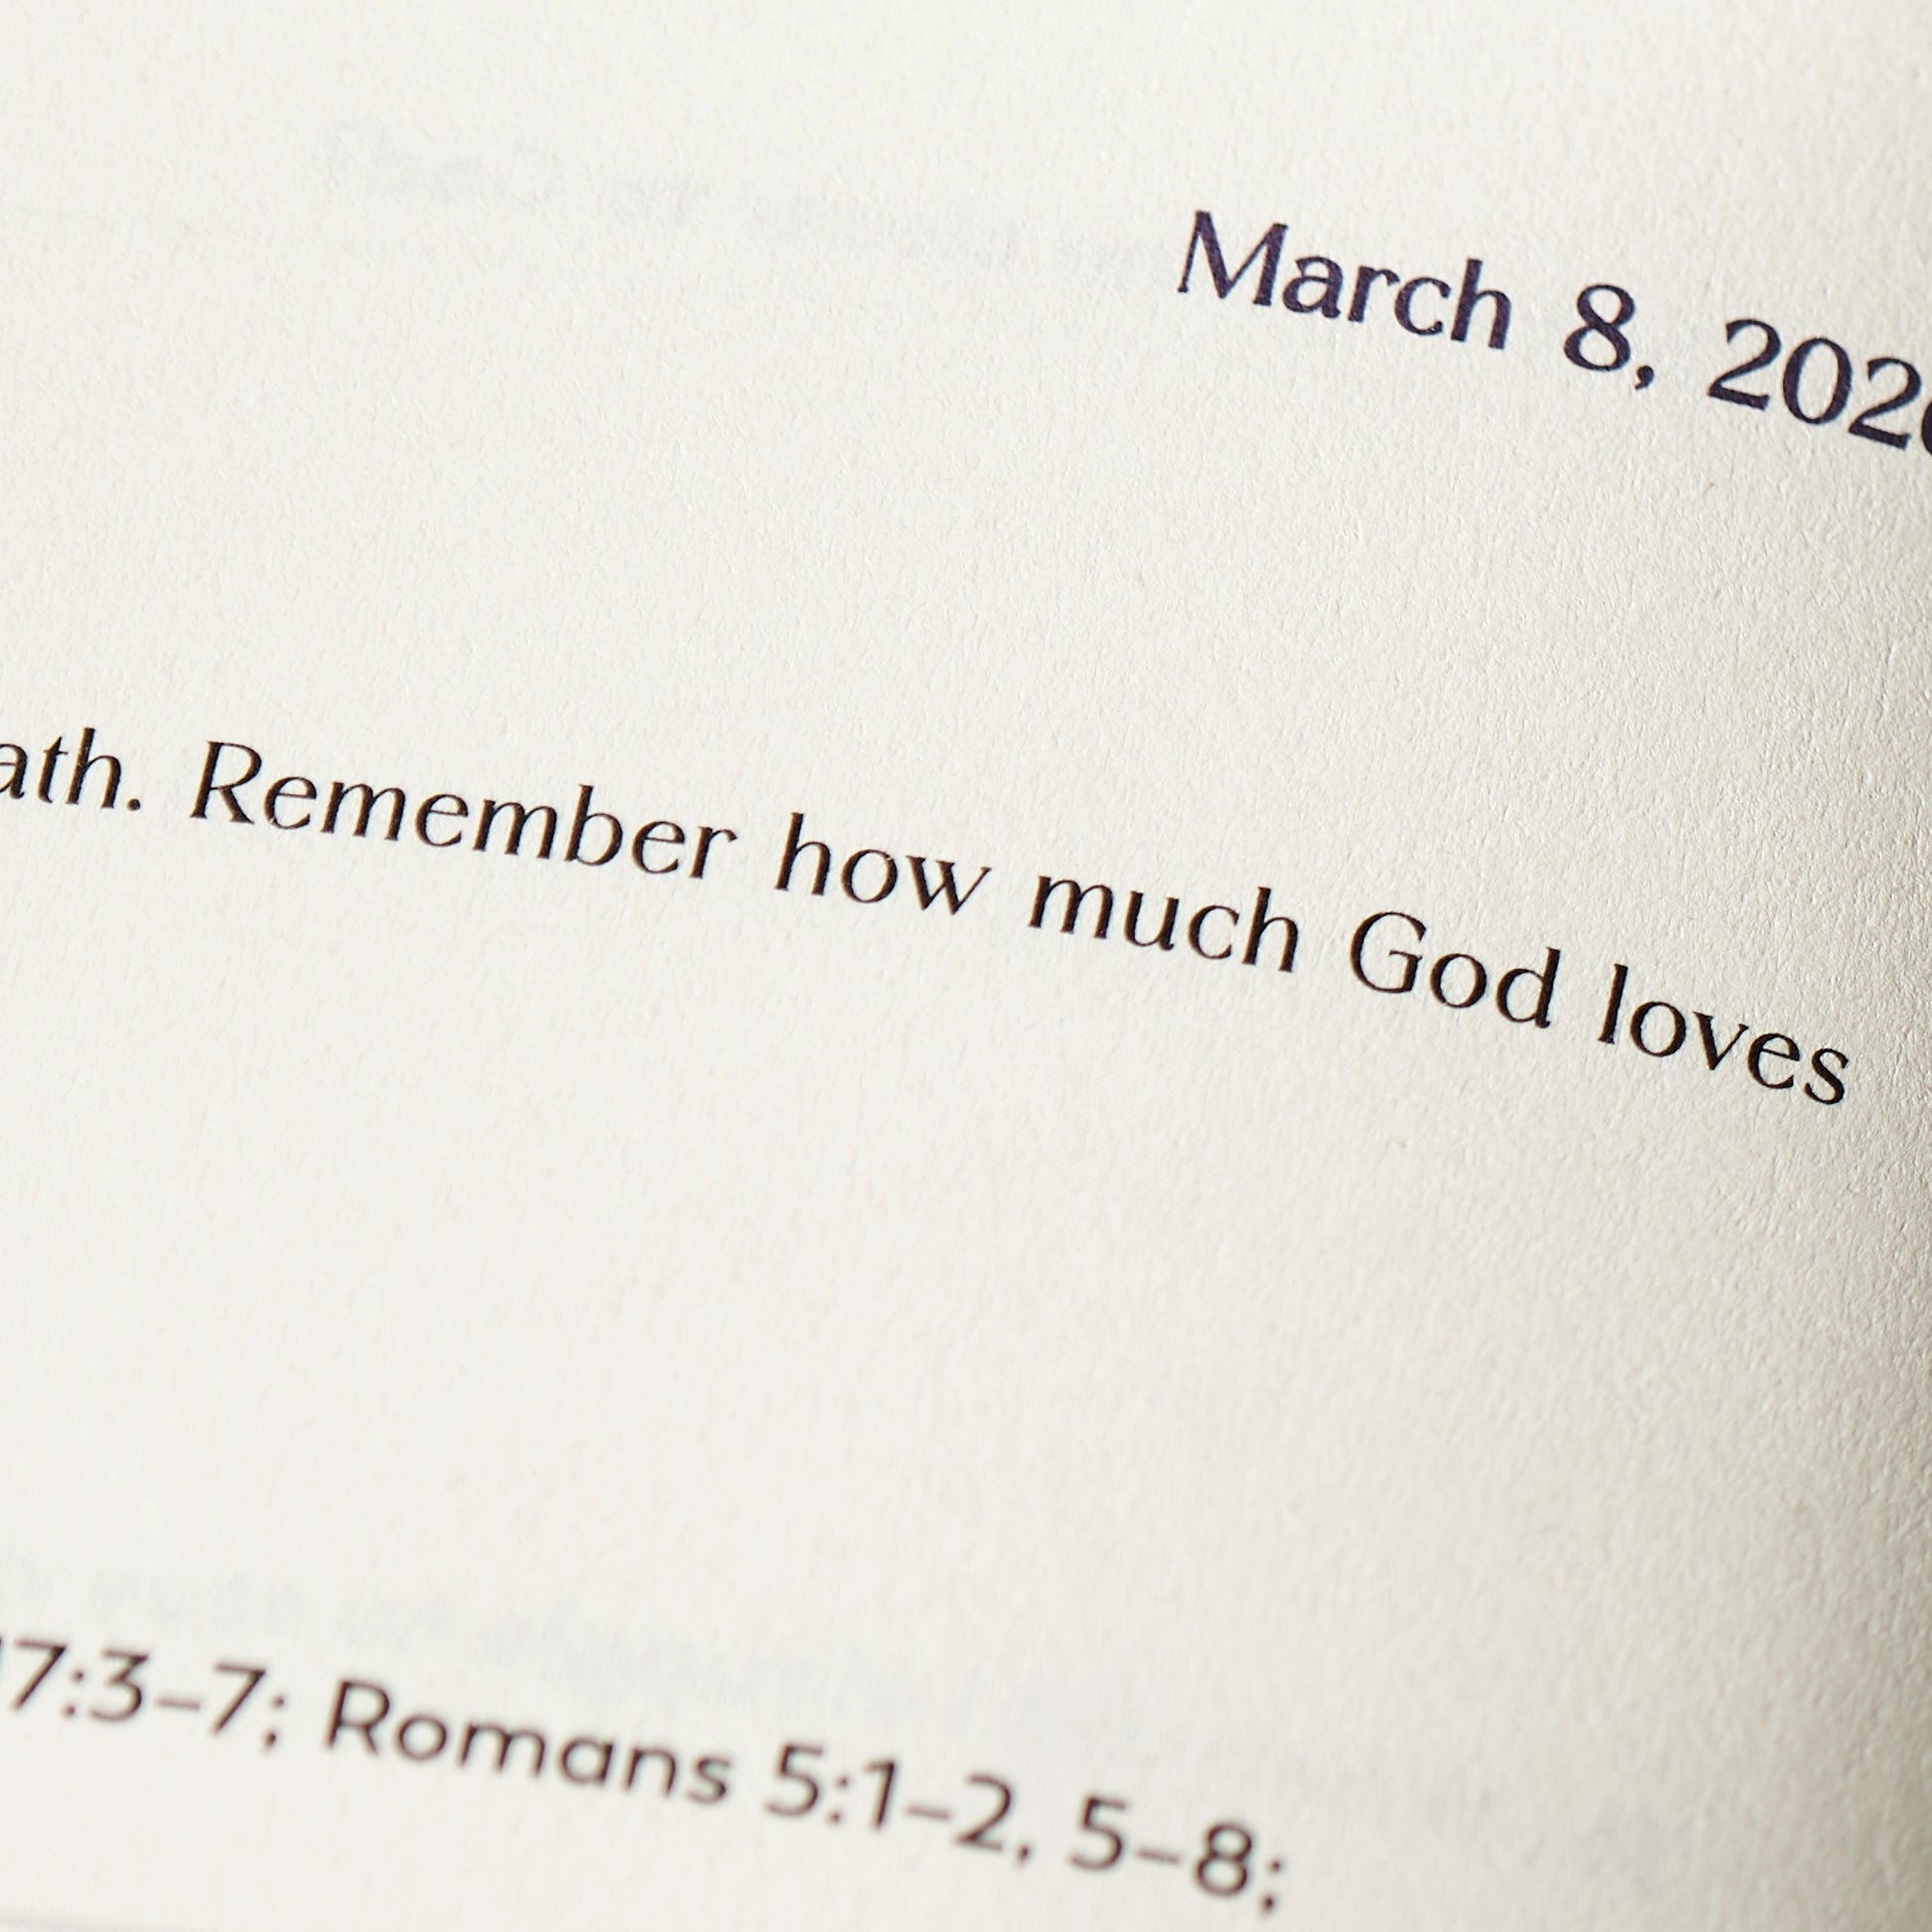 March 8, 202
ath. Remember how much God loves
17:3–7; Romans 5:1–2, 5–8;